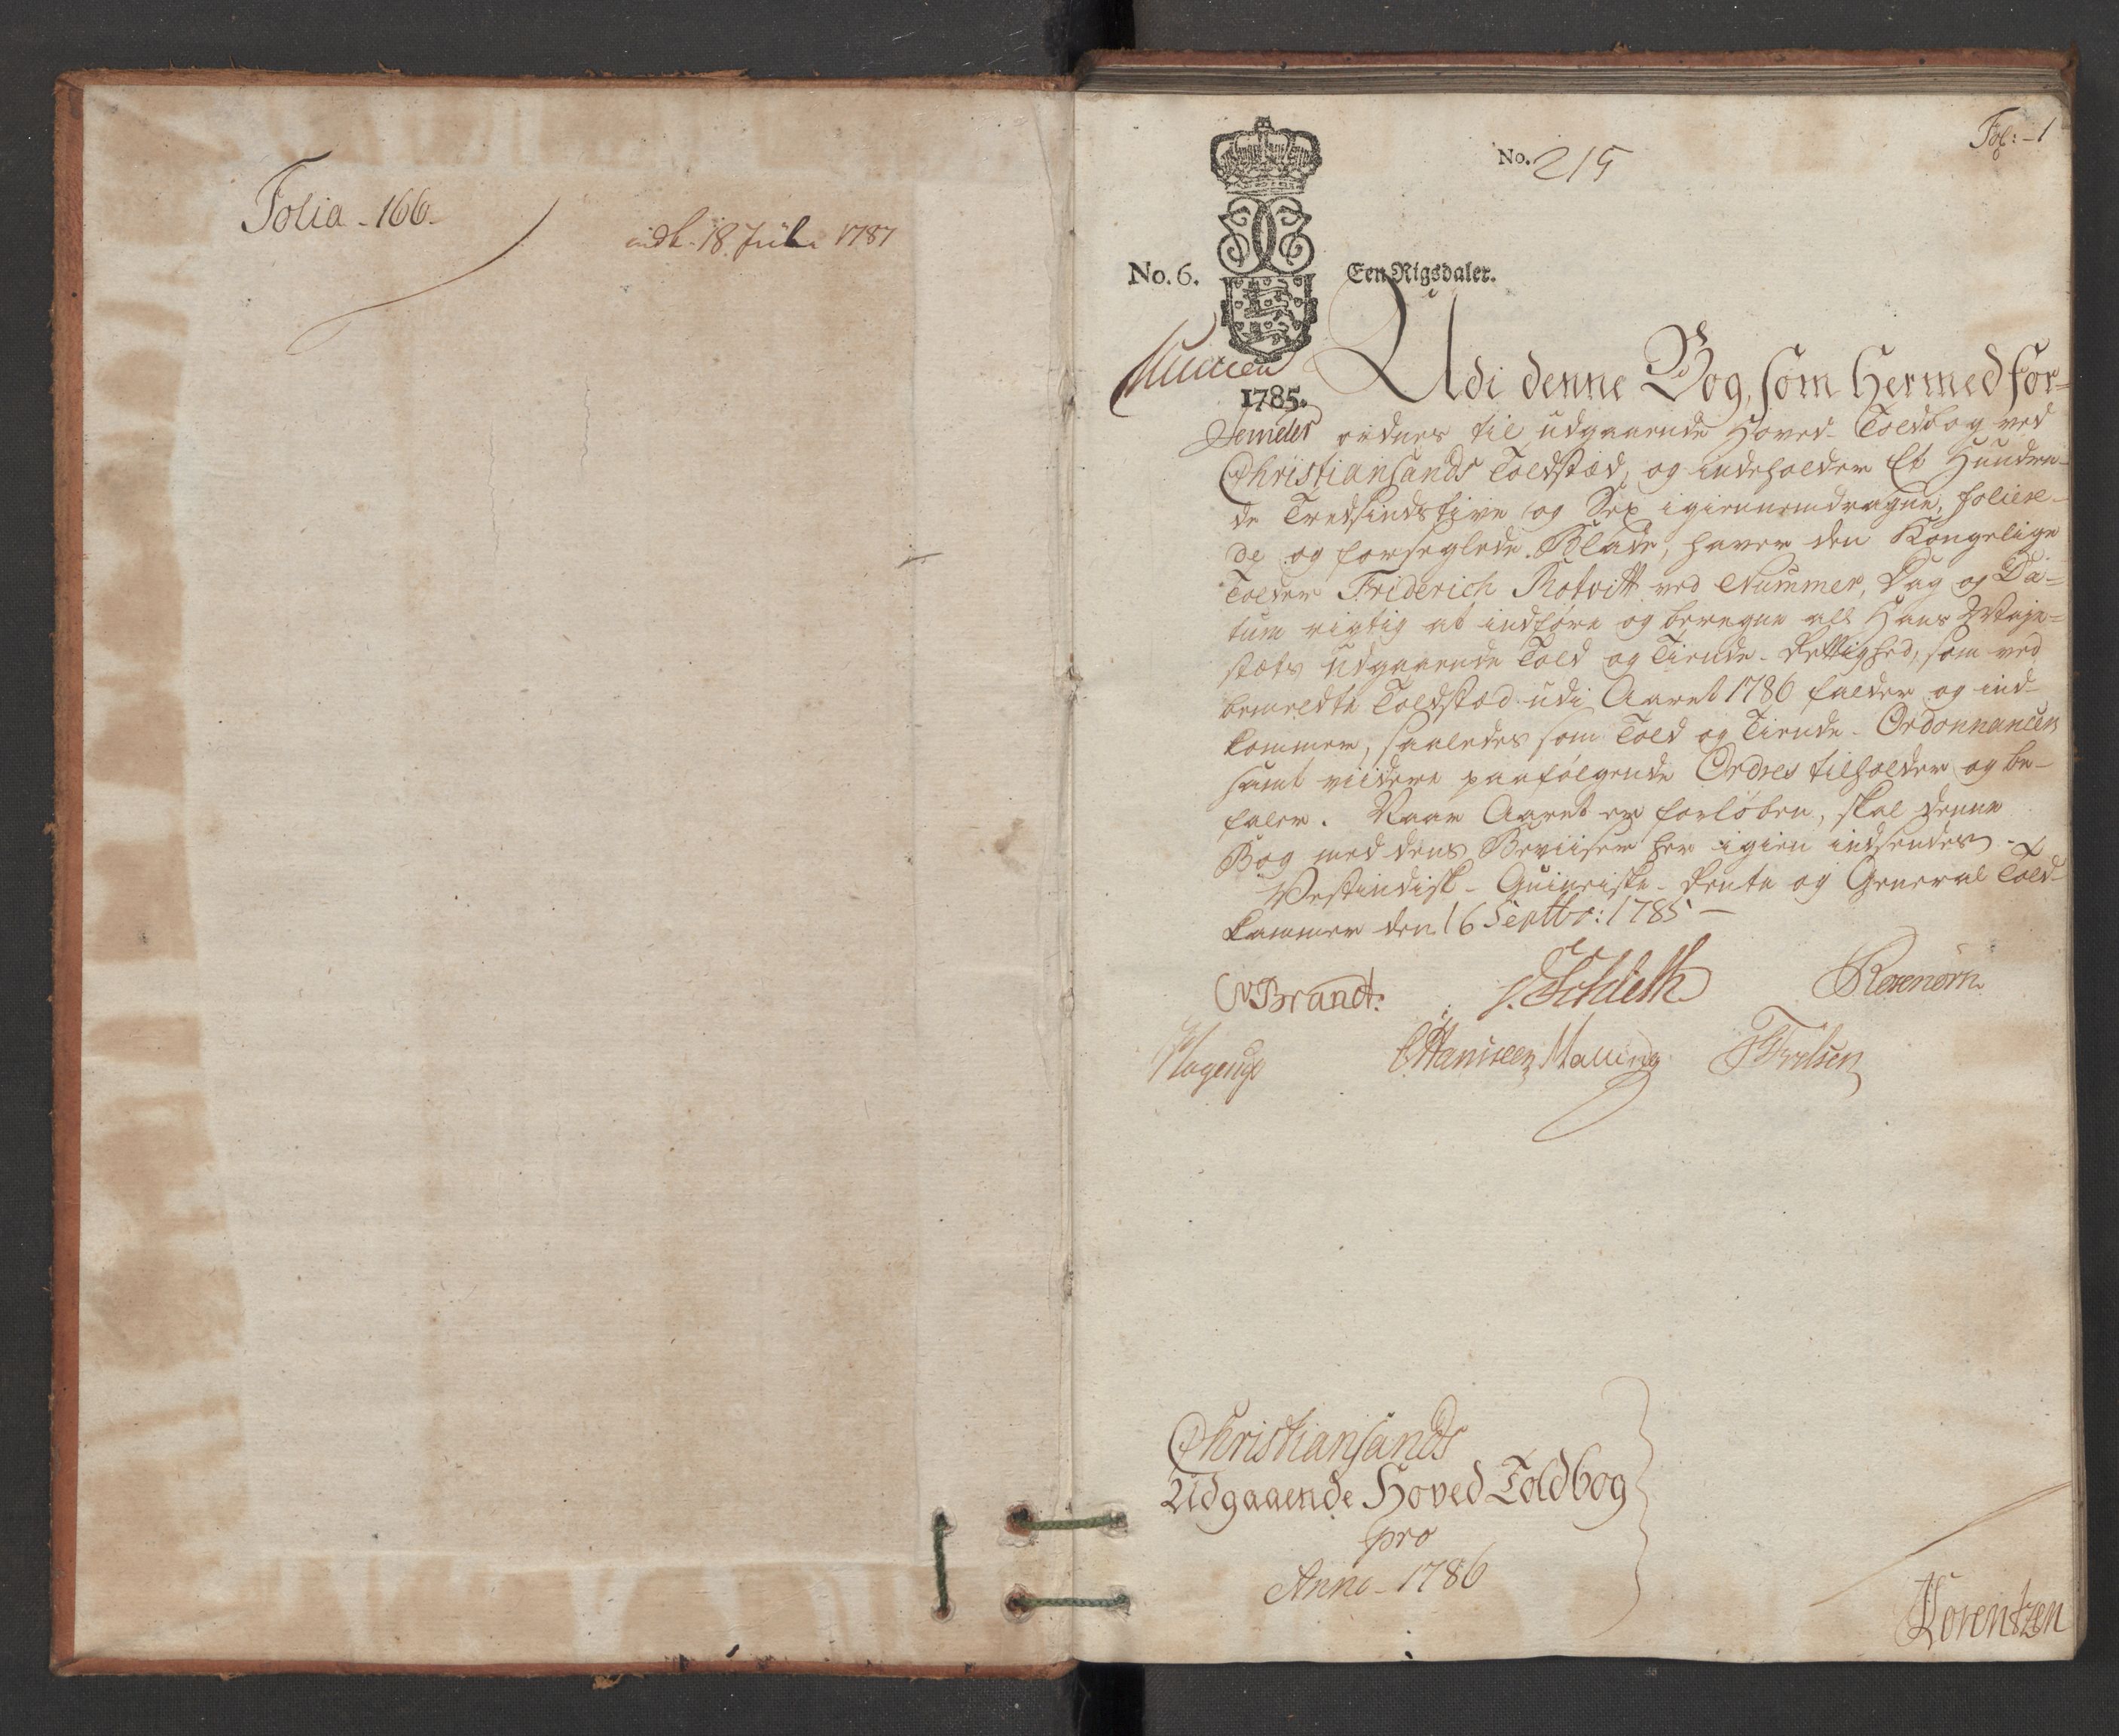 Folia - 166 -
indk. 18. Julii 1787
Fol: - 1
No. 215
No. 6. Een Rigsdaler.
1785.
Udi denne Bog, som hermed for-
sendes ordnes til udgaaende Hoved-Toldbog ved
Christiansands Toldstæd, og indeholder Et Hundre-
de Tredsindstive og Sex igiennemdragne, foliere-
de og forseglede Blade, haver den Kongelige
Tolder Friderich Rotvitt ved Nummer, Dag og Da-
tum rigtig at indføre og beregne all Hans Maje-
stæts udgaaende Told og Tiende-Rettighed, som ved
bemeldte Toldstæd udi Aaret 1786 falder og ind-
kommer, saaledes som Told og Tiende-Ordonnancen
samt viidere paafølgende Ordres tilholder og be-
faler. Naar Aaret er forløben, skal denne
Bog med dens Beviiser her igien indsendes.
Vestindisk-Guineiske-Rente og General Told-
kammer den 16 Septbr: 1785 -
CVBrandt.
Rosenørn
Hagerup
OHansteen Malling
Christiansands
Udgaaende Hoved Toldbog
pro
Anno - 1786
Lorentzen